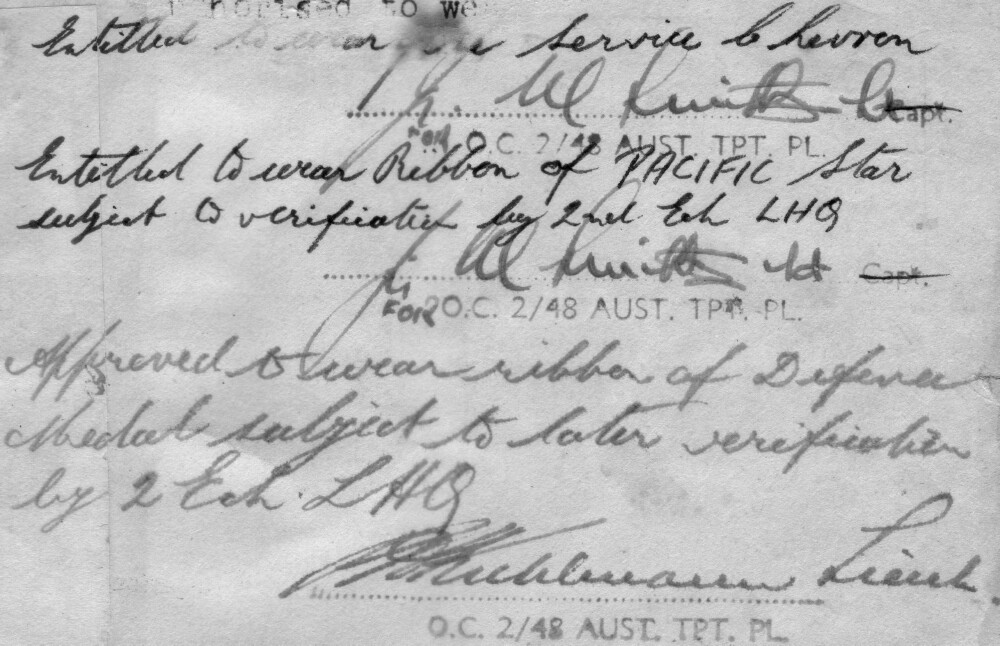 horised to we
Entitled to wear one service Chevron
J. W. Smith Lt Capt.
FOR O.C. 2/48 AUST. TPT. PL.
Entitled to wear Ribbon of PACIFIC Star
subject to verification by 2nd Ech LHQ
J. W. Smith Lt Capt.
FOR O.C. 2/48 AUST. TPT. PL.
Approved to wear ribbon of Defence
Medal subject to later verification
by 2 Ech. LHQ
Lieut
O.C. 2/48 AUST. TPT. PL.